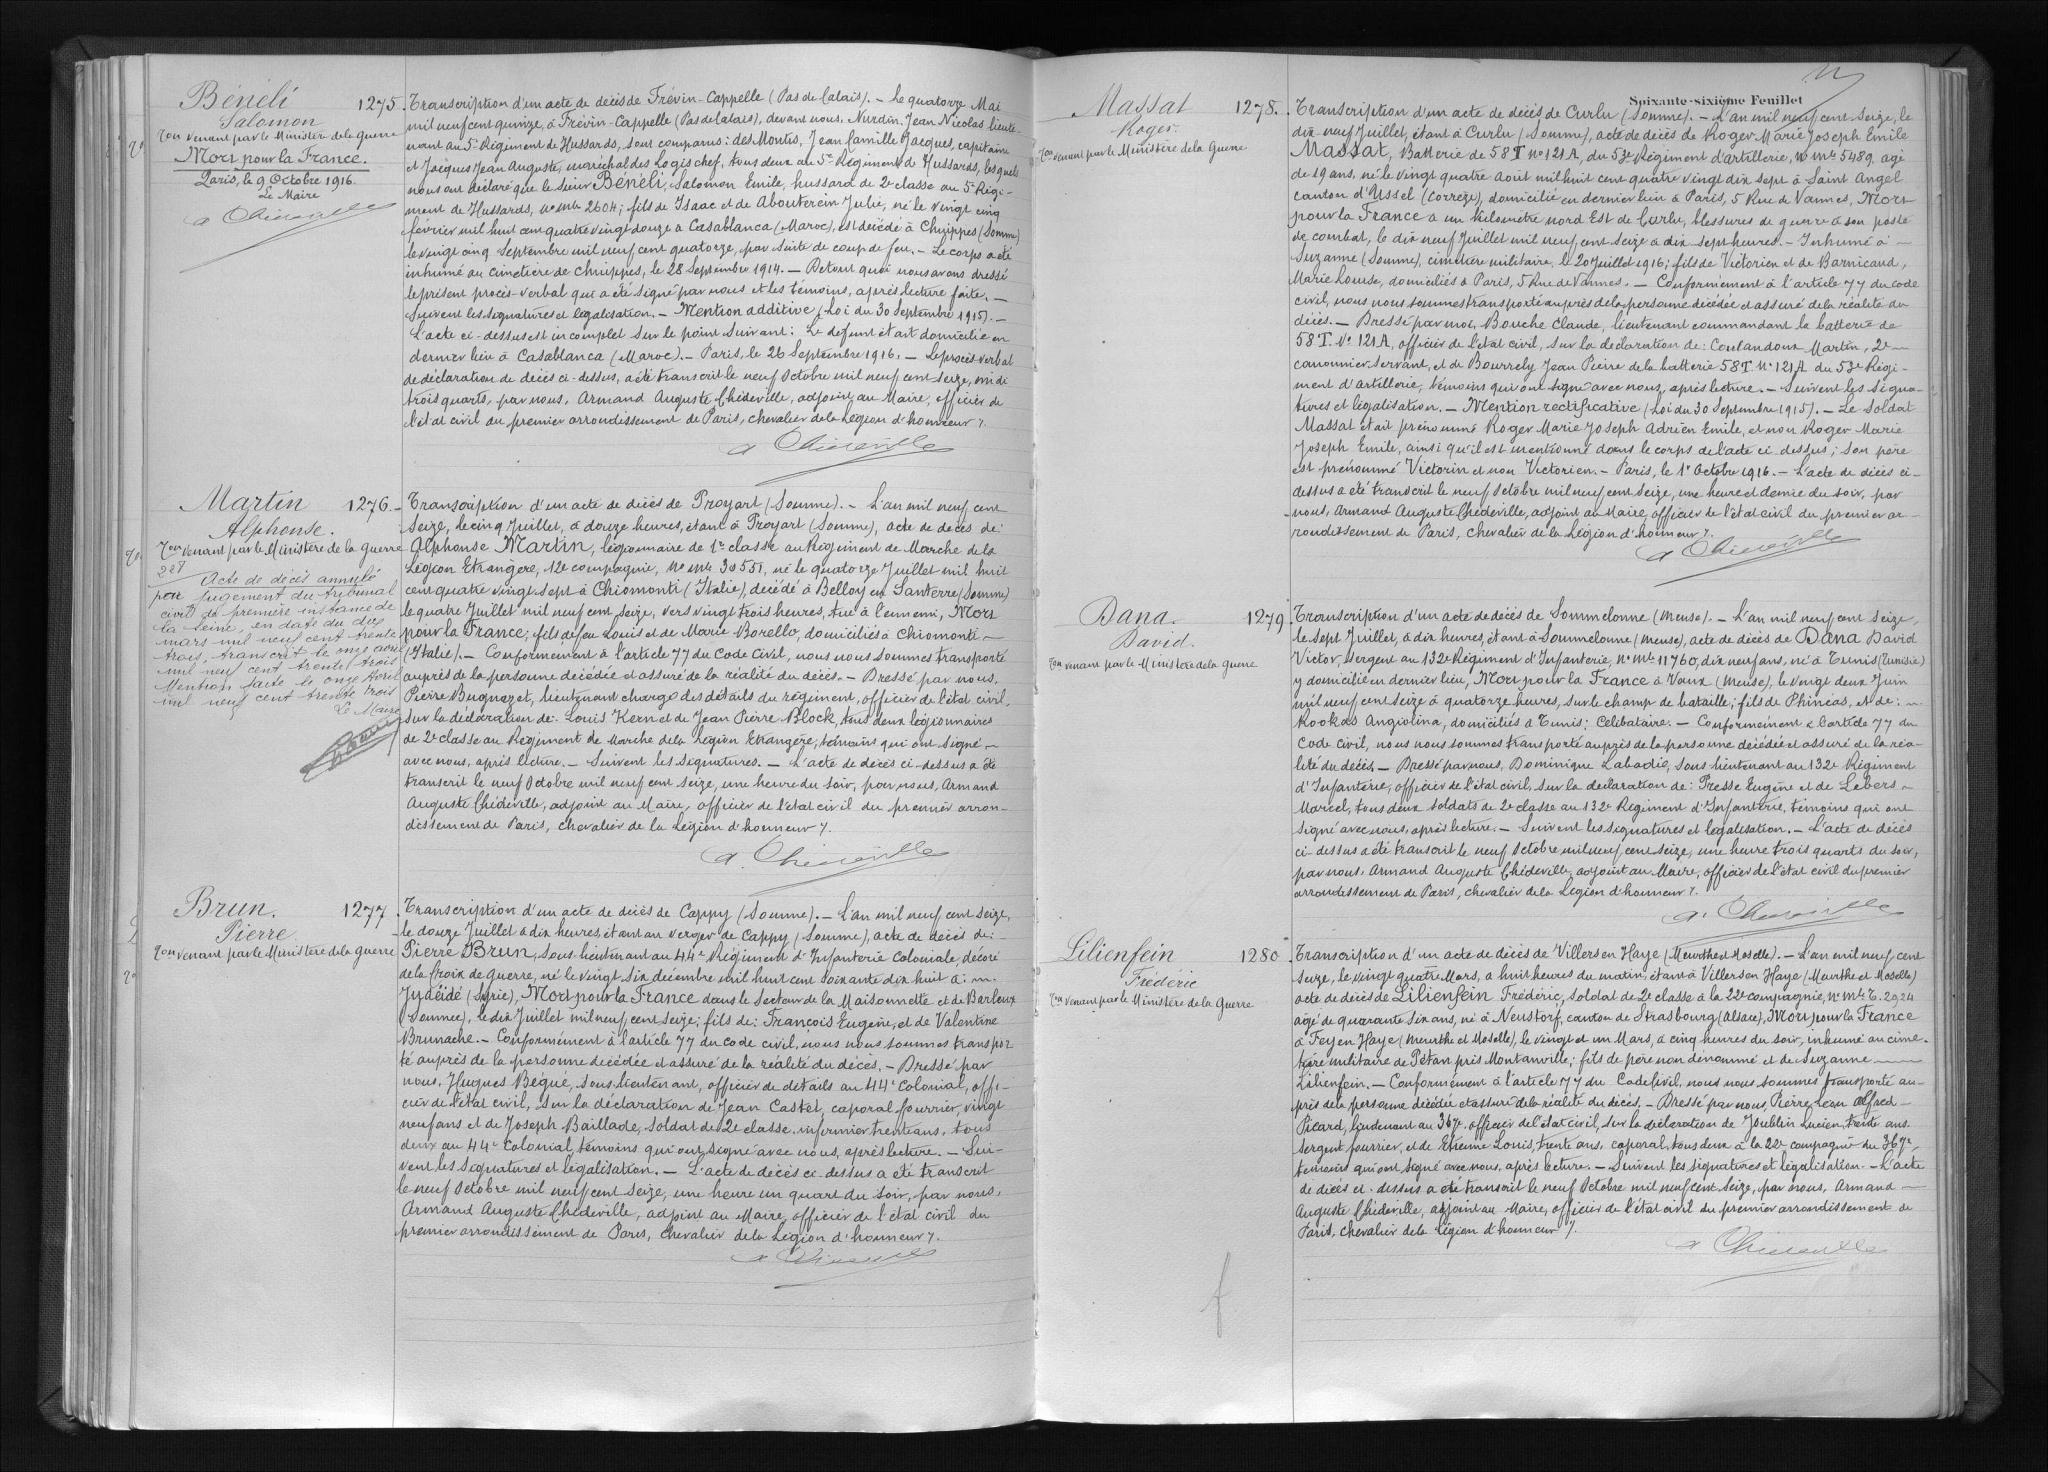 Bénéli
Salomon
Ton venant par le Ministère de la Guerre
Mort pour la France.
Paris, le 9 Octobre 1916.
Le Maire
1275. Transcription d'un acte de décès de Frévin-Cappelle (Pas de Calais). — Le quatorze Mai
mil neuf cent quinze, à Frévin-Cappelle (Pas de Calais), devant nous, Nurdin, Jean Nicolas lieute-
nant au 5e Régiment de Hussards, sont comparus: des Moutis, Jean Camille Jacques, capitaine
et Jacques Jean Auguste, maréchal des Logis chef, tous deux au 5e Régiment de Hussards, lesquels
nous ont déclaré que le sieur Bénéli, Salomon Emile, hussard de 2e classe au 5e Régi-
ment de Hussards, no mle 2604; fils de Isaac et de Abouterein Julie, né le vingt cinq
février mil huit cent quatre vingt douze à Casablanca (Maroc), est décédé à Chuippes (Somme)
le vingt cinq Septembre mil neuf cent quatorze, par suite de coup de feu. — Le corps a été
inhumé au cimetière de Chuippes, le 28 Septembre 1914. — De tout quoi nous avons dressé
le présent procès-verbal qui a été signé par nous et les témoins, après lecture faite. —
Suivent les signatures et légalisation. — Mention additive (Loi du 30 Septembre 1915). —
L'acte ci-dessus est incomplet sur le point suivant: Le défunt était domicilié en
dernier lieu à Casablanca (Maroc). — Paris, le 26 Septembre 1916. — Le procès-verbal
de déclaration de décès ci-dessus, a été transcrit le neuf Octobre mil neuf cent seize, midi
trois quarts, par nous, Armand Auguste Chédeville, adjoint au Maire, officier de
l'état civil du premier arrondissement de Paris, chevalier de la Légion d'honneur ./.
A Chédeville
Martin
Alphonse.
Ton venant par le Ministère de la Guerre
Acte de décès annulé
par jugement du tribunal
civil de première instance de
la Seine, en date du dix
mars mil neuf cent trente
trois, transcrit le onze avril
mil neuf cent trente trois
Mention faite le onze Avril
mil neuf cent trente trois
Le Maire
1276. Transcription d'un acte de décès de Proyart (Somme). — L'an mil neuf cent
seize, le cinq Juillet, à douze heures, étant à Proyart (Somme), acte de décès de:
Alphonse Martin, légionnaire de 1re classe au Régiment de Marche de la
Légion Etrangère, 12e compagnie, No mle 30551, né le quatorze Juillet mil huit
cent quatre vingt sept à Chiomonti (Italie), décédé à Belloy en Santerre (Somme)
le quatre Juillet mil neuf cent seize, vers vingt trois heures, tué à l'ennemi, Mort
pour la France; fils de feu Louis et de Marie Borello, domiciliés à Chiomonti —
(Italie). — Conformément à l'article 77 du Code Civil, nous nous sommes transporté
auprès de la personne décédée et assuré de la réalité du décès. — Dressé par nous,
Pierre Bugnazet, lieutenant chargé des détails du régiment, officier de l'état civil,
sur la déclaration de: Louis Kern et de Jean Pierre Block, tous deux légionnaires
de 2e classe au Régiment de Marche de la Légion Etrangère, témoins qui ont signé —
avec nous, après lecture. — Suivent les signatures. — L'acte de décès ci-dessus a été
transcrit le neuf Octobre mil neuf cent seize, une heure du soir, par nous, Armand
Auguste Chédeville, adjoint au Maire, officier de l'état civil du premier arron-
dissement de Paris, chevalier de la Légion d'honneur ./.
A Chédeville
Brun.
Pierre
Ton venant par le Ministère de la Guerre
1277. Transcription d'un acte de décès de Cappy (Somme). — L'an mil neuf cent seize,
le douze Juillet à dix heures, étant au verger de Cappy (Somme), acte de décès de:
Pierre Brun, sous-lieutenant au 44e Régiment d'Infanterie Coloniale, décoré
de la Croix de Guerre, né le vingt six décembre mil huit cent soixante dix huit à:
Jydéïdé (Syrie), Mort pour la France dans le secteur de la Maisonnette et de Barleux
(Somme), le dix Juillet mil neuf cent seize; fils de: François Eugène, et de Valentine
Brunache. — Conformément à l'article 77 du code civil, nous nous sommes transpor-
té auprès de la personne décédée et assuré de la réalité du décès. — Dressé par
nous, Hugues Bégué, sous-lieutenant, officier de détails au 44e Colonial, offi-
cier de l'état civil, sur la déclaration de Jean Castet, caporal fourrier, vingt
neuf ans et de Joseph Baillade, soldat de 2e classe infirmier trente ans, tous
deux au 44e Colonial, témoins qui ont signé avec nous, après lecture. — Sui-
vent les signatures et légalisation. — L'acte de décès ci-dessus a été transcrit
le neuf Octobre mil neuf cent seize, une heure un quart du soir, par nous,
Armand Auguste Chédeville, adjoint au Maire, officier de l'état civil du
premier arrondissement de Paris, chevalier de la Légion d'honneur ./.
A Chédeville
Soixante-sixième Feuillet
Massat
Roger.
Ton venant par le Ministère de la Guerre
1278. Transcription d'un acte de décès de Curlu (Somme). — L'an mil neuf cent seize, le
dix-neuf Juillet, étant à Curlu (Somme), acte de décès de Roger Marie Joseph Emile
Massat, Batterie de 58 T no 121 A, du 53e Régiment d'Artillerie, no mle 5489, agé
de 19 ans, né le vingt quatre Août mil huit cent quatre vingt dix sept à Saint Angel
canton d'Ussel (Corrèze), domicilié en dernier lieu à Paris, 5 Rue de Vannes, Mort
pour la France à un kilomètre nord Est de Curlu, blessures de guerre à son poste
de combat, le dix neuf Juillet mil neuf cent seize à dix sept heures. — Inhumé à —
Suzanne (Somme), cimetière militaire, le 20 Juillet 1916; fils de Victorien et de Barnicaud,
Marie Louise, domiciliés à Paris, 5 Rue de Vannes. — Conformément à l'article 77 du code
civil, nous nous sommes transporté auprès de la personne décédée et assuré de la réalité du
décès. — Dressé par moi, Bouche Claude, lieutenant commandant la batterie de
58 T. No 121 A, officier de l'état civil, sur la déclaration de: Coulandoux Martin, 2e —
canonnier servant, et de Bourrely Jean Pierre de la batterie 58 T. No 121 A du 53e Régi-
ment d'Artillerie, témoins qui ont signé avec nous, après lecture. — Suivent les signa-
tures et légalisation. — Mention rectificative (Loi du 30 Septembre 1915). — Le Soldat
Massat était prénommé Roger Marie Joseph Adrien Emile, et non Roger Marie
Joseph Emile, ainsi qu'il est mentionné dans le corps de l'acte ci dessus; son père
est prénommé Victorin et non Victorien. — Paris, le 1er Octobre 1916. — L'acte de décès ci-
dessus a été transcrit le neuf Octobre mil neuf cent seize, une heure et demie du soir, par
nous, Armand Auguste Chédeville, adjoint au Maire, officier de l'état civil du premier ar-
rondissement de Paris, chevalier de la Légion d'honneur ./.
A Chédeville
Dana.
David.
Ton venant par le Ministère de la Guerre
1279. Transcription d'un acte de décès de Sommelonne (Meuse). — L'an mil neuf cent seize,
le sept Juillet, à dix heures, étant à Sommelonne (Meuse), acte de décès de Dana David
Victor, sergent au 132e Régiment d'Infanterie, No mle 11760, dix neuf ans, né à Tunis (Tunisie)
y domicilié en dernier lieu, Mort pour la France à Vaux (Meuse), le vingt deux Juin
mil neuf cent seize à quatorze heures, sur le champ de bataille; fils de Phinéas, et de:
Kookas Angiolina, domiciliés à Tunis; Célibataire. — Conformément à l'article 77 du
Code civil, nous nous sommes transporté auprès de la personne décédée et assuré de la réa-
lité du décès. — Dressé par nous, Dominique Labadie, sous lieutenant au 132e Régiment
d'Infanterie, officier de l'état civil, sur la déclaration de: Presse Eugène et de Lebers —
Marcel, tous deux soldats de 2e classe au 132e Régiment d'Infanterie, témoins qui ont
signé avec nous, après lecture. — Suivent les signatures et légalisation. — L'acte de décès
ci-dessus a été transcrit le neuf Octobre mil neuf cent seize, une heure trois quarts du soir,
par nous, Armand Auguste Chédeville, adjoint au Maire, officier de l'état civil du premier
arrondissement de Paris, chevalier de la Légion d'honneur ./.
A. Chédeville
Lilienfein
Frédéric
Ton venant par le Ministère de la Guerre
1280. Transcription d'un acte de décès de Villers en Haye (Meurthe et Moselle). — L'an mil neuf cent
seize, le vingt quatre Mars, à huit heures du matin, étant à Villers en Haye (Meurthe et Moselle)
acte de décès de Lilienfein Frédéric, soldat de 2e classe à la 22e compagnie, No mle T. 2924
agé de quarante six ans, né à Neustorf, canton de Strasbourg (Alsace), Mort pour la France
à Fey en Haye (Meurthe et Moselle), le vingt et un Mars, à cinq heures du soir, inhumé au cime-
tière militaire de Pétan près Montauville; fils de père non dénommé et de Suzanne —
Lilienfein. — Conformément à l'article 77 du Code Civil, nous nous sommes transporté au-
près de la personne décédée et assuré de la réalité du décès. — Dressé par nous, Pierre Léon Alfred —
Picard, lieutenant au 367e, officier de l'état civil, sur la déclaration de Joublin Lucien, trente ans
sergent fourrier, et de Etienne Louis, trente ans, caporal, tous deux à la 22e compagnie du 367e,
témoins qui ont signé avec nous, après lecture. — Suivent les signatures et légalisation. — L'acte
de décès ci-dessus a été transcrit le neuf Octobre mil neuf cent seize, par nous, Armand —
Auguste Chédeville, adjoint au Maire, officier de l'état civil du premier arrondissement de
Paris, chevalier de la Légion d'honneur ./.
A Chédeville